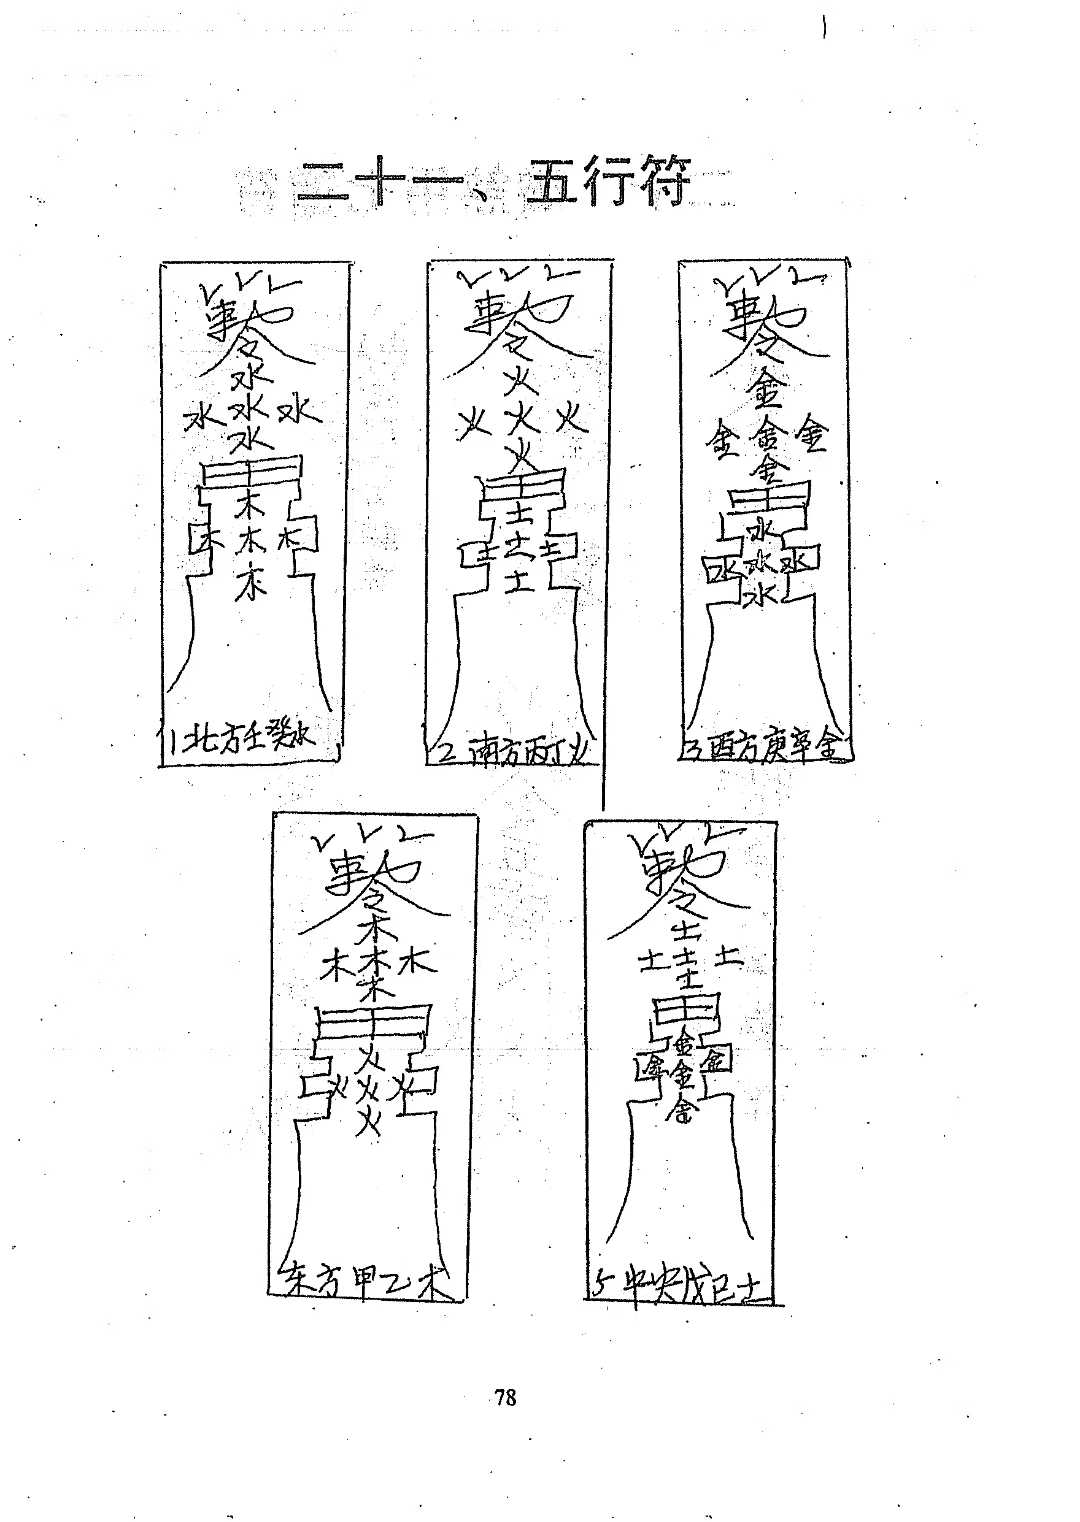 二十一、五行符
敕令
水
水水水
水
木
木木木
木
1北方壬癸水
敕令
火
火火火
火
土
土土土
土
2南方丙丁火
敕令
金
金金金
金
水
水水水
水
3西方庚辛金
敕令
木
木木木
木
火
火火火
火
东方甲乙木
敕令
土
土土土
土
金
金金金
金
5中央戊己土
78